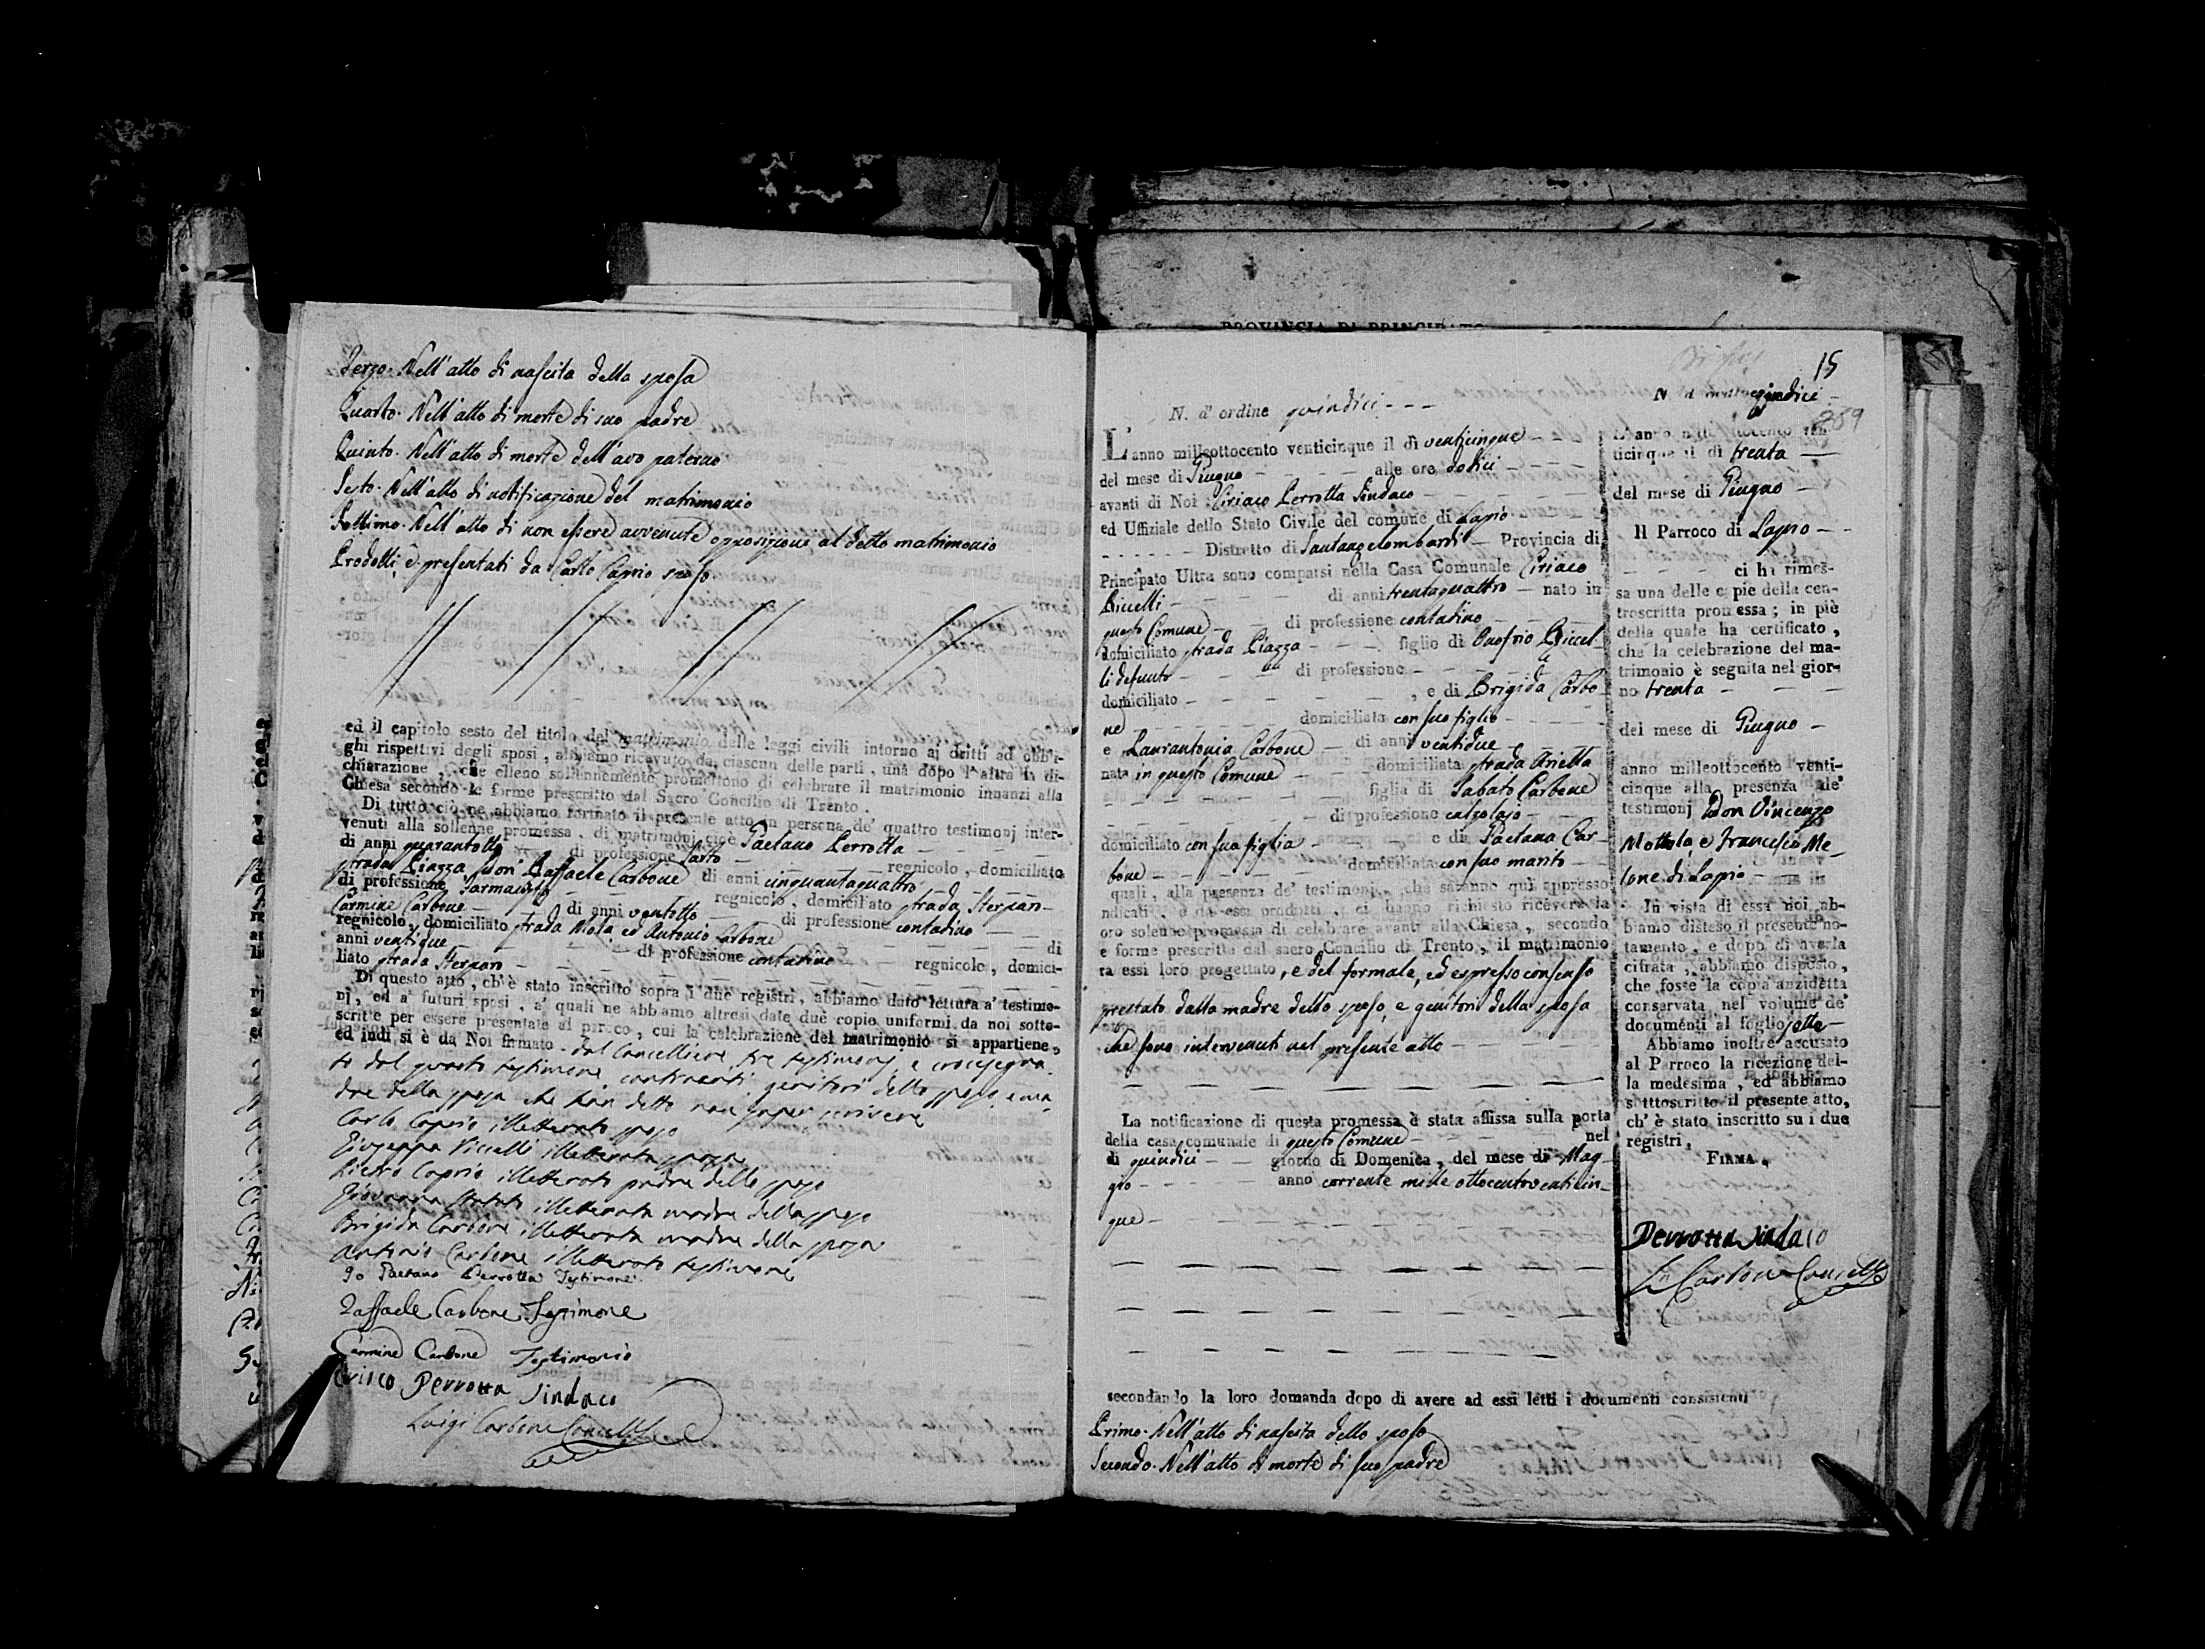 Terzo. Nell'atto di nascita della sposa
Quarto. Nell'atto di morte di suo padre
Quinto. Nell'atto di morte dell'avo paterno
Sesto. Nell'atto di notificazione del matrimonio
Settimo. Nell'atto di non essere avvenute opposizioni al detto matrimonio
Prodotti, e presentati da Carlo Caprio sposo
ed il capitolo sesto del titolo del matrimonio delle leggi civili intorno ai dritti ad obbli-
ghi rispettivi degli sposi, abbiamo ricevuto da ciascuna delle parti, una dopo l'altra la di-
chiarazione, che elleno solennemente promettono di celebrare il matrimonio innanzi alla
Chiesa secondo le forme prescritte dal Sacro Concilio di Trento.
Di tutto ciò ne abbiamo formato il presente atto in persona de' quattro testimonj inter-
venuti alla sollenne promessa, di matrimonj cioè Gaetano Perrotta
di anni quarantotto di professione Sarto regnicolo, domiciliato
strada Piazza Don Raffaele Carbone di anni cinquantaquattro
di professione Farmacista regnicolo, domiciliato strada Sterpan-
Carmine Carbone di anni ventotto di professione contadino
regnicolo, domiciliato strada Mola ed Antonio Carbone di
anni ventidue di professione contadino regnicolo, domici-
liato strada Sterpan
Di questo atto, ch'è stato inscritto sopra i due registri, abbiamo dato lettura a' testimo-
nj, ed a' futuri sposi, a' quali ne abbiamo altresì date due copie uniformi da noi sotto-
scritte per essere presentate al parroco, cui la celebrazione del matrimonio si appartiene,
ed indi si è da Noi firmato dal Cancelliere, tre testimonj, e crocesegna-
to dal quarto testimone, contraenti, genitori dello sposo, e ma-
dre della sposa che han detto non saper scrivere
Carlo Caprio illetterato sposo
Giuseppa Piccelli illetterata sposa
Pietro Caprio illetterato padre dello sposo
Giovanna illetterata madre dello sposo
Brigida Carbone illetterata madre della sposa
Antonio Carbone illetterato testimone
Io Gaetano Perrotta Testimone
Raffaele Carbone Testimone
Carmine Carbone Testimonio
Ciriaco Perrotta Sindaco
Luigi Carbone Cancell
15
N. d'ordine quindici
L'anno milleottocento venticinque il dì venticinque
del mese di Giugno alle ore dodici
avanti di Noi Ciriaco Perrotta Sindaco
ed Uffiziale dello Stato Civile del comune di Lapio
Distretto di Santangelombardi Provincia di
Principato Ultra sono comparsi nella Casa Comunale Ciriaco
Piccelli di anni trentaquattro nato in
questo Comune di professione contadino
domiciliato strada Piazza figlio di Onofrio Piccel-
li defunto di professione
domiciliato, e di Brigida Carbo-
ne domiciliata con suo figlio
e Laurantonia Carbone di anni ventidue
nata in questo Comune domiciliata strada Arietta
figlia di Sabato Carbone
di professione calzolajo
domiciliato con sua figlia e di Gaetana Car-
bone domiciliata con suo marito
quali, alla presenza de' testimonj, che saranno qui appresso
ndicati, e da essi prodotti, ci hanno richiesto ricevere la
oro solenne promessa di celebrare avanti alla Chiesa, secondo
e forme prescritte dal sacro Concilio di Trento, il matrimonio
ra essi loro progettato, e del formale, ed espresso consenso
prestato dalla madre dello sposo, e genitori della sposa
che sono intervenuti nel presente atto
La notificazione di questa promessa è stata affissa sulla porta
della casa comunale di questo Comune nel
di quindici giorno di Domenica, del mese di Mag-
gio anno corrente mille ottocentoventicin-
que
secondando la loro domanda dopo di avere ad essi letti i documenti consistenti
Primo. Nell'atto di nascita dello sposo
Secondo. Nell'atto di morte di suo padre
N. d'ordine quindici
289
L'anno milleottocento ven-
ticinque il di trenta
del mese di Giugno
Il Parroco di Lapio
ci ha rimes-
sa una delle copie della con-
troscritta promessa; in piè
della quale ha certificato,
che la celebrazione del ma-
trimonio è seguita nel gior-
no trenta
del mese di Giugno
anno milleottocento venti-
cinque alla presenza de'
testimonj Don Vincenzo
Mottola, e Francesco Me-
lone di Lapio
In vista di essa noi ab-
biamo disteso il presente no-
tamento, e dopo di averla
cifrata, abbiamo disposto,
che fosse la copia anzidetta
conservata nel volume de'
documenti al foglio sette
Abbiamo inoltre accusato
al Parroco la ricezione del-
la medesima, ed abbiamo
sotttoscritto il presente atto,
ch'è stato inscritto su i due
registri,
FIRMA.
Perrotta Sindaco
Carbone Cancell